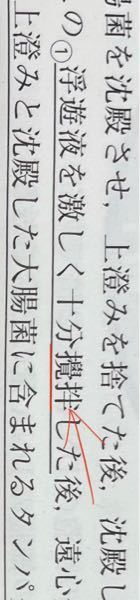 菌を沈殿させ，上澄みを捨てた後，沈殿し
の①浮遊液を激しく十分攪拌した後，遠心
上澄みと沈殿した大腸菌に含まれるタンパ